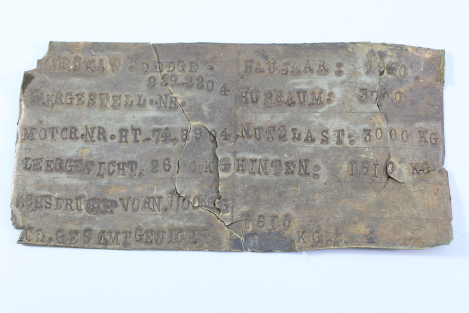 DODGE. BAUJAAR: 19 0.
229-2204
FAHRGESTELL.NR. HUBRAUM: 3 00
MOTOR.NR.HT-74-5904. NUTZLAST: 3000 KG
LEERGEWICHT. 26 0 KG HINTEN: 1510 KG.
ACHSDRUCK VORN.1100KG
5610
ZUL.GESAMTGEWICHT KG.